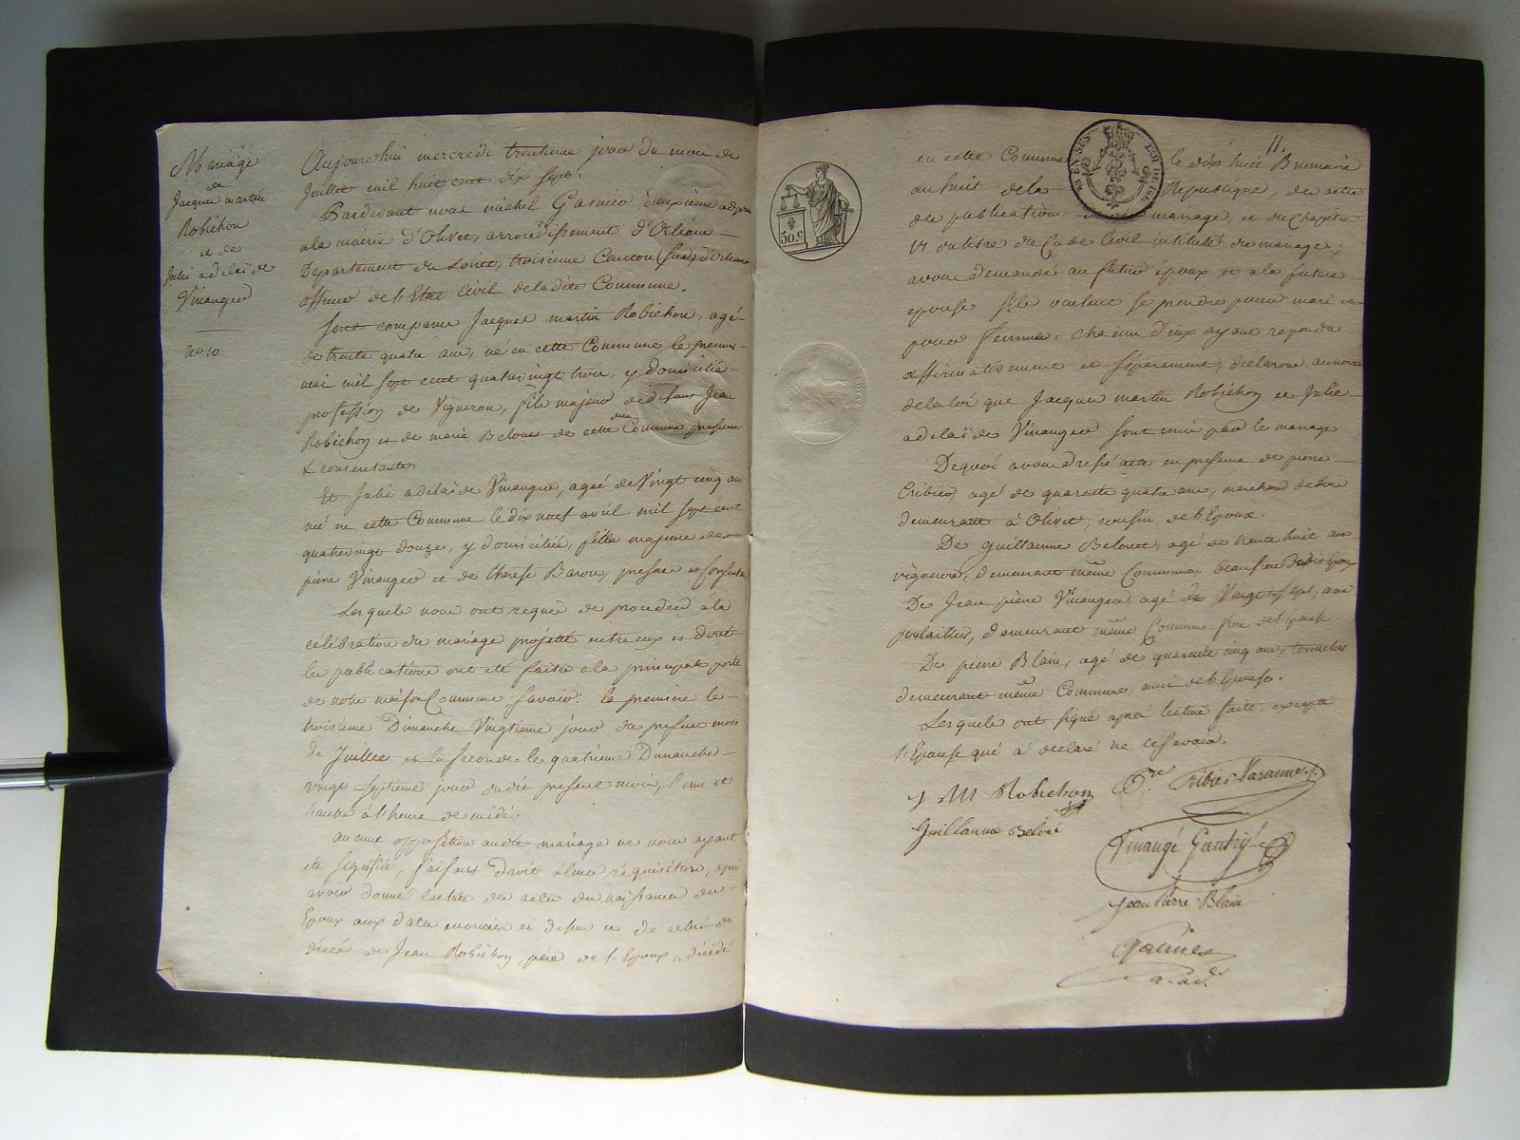 Mariage
de
Jacques martin
Robichon
et de
Julie adelaïde
Vinauger
No 10
Aujourdhui mercredi trentieme jour du mois de
Juillet mil huit cent dix sept.
Pardevant nous michel Garnier deuxieme adjoin
a la mairie d'Olivet, arrondissement d'Orléans
Departement du Loiret, troisieme Canton (sud) d'Orleans
officier de l'Etat Civil de ladite Commune.
Sont comparus Jacques martin Robichon, agé
de trente quatre ans, né en cette Commune le premier
mai mil sept cent quatrevingt trois, y domicilié
profession de Vigneron, fils majeur de defunt Jean
Robichon et de marie Belouet de cette Commune presente
& consentante
Et Julie adelaïde Vinauger, agée de Vingt cinq ans
née en cette Commune le dix neuf avril mil sept cent
quatrevingt douze, y domiciliée, fille majeure de
pierre Vinauger et de therese Baron, presens et consentans
Lesquels nous ont requis de proceder a la
célébration du mariage projetté entre eux et dont
les publications ont été faites a la principale porte
de notre maison Commune savoir: la premiere le
troisieme Dimanche Vingtieme jour du present mois
de Juillet et la seconde le quatrieme Dimanche
vingt septieme jour dudit present mois, l'une et
l'autre à l'heure de midi;
aucune opposition audit mariage ne nous ayant
été signifiée, faisant droit a leur réquisition, apres
avoir donné lecture des actes de naissance des
Epoux aux dates enoncées ci dessus et de celui de
décès de Jean Robichon, père de l'Epoux, décédé
11.
en cette Commune le dix huit Brumaire
an huit de la Republique, de actes
de publication mariage, et du chapitre
VI du titre du Code Civil intitulé du mariage;
avons demandé au futur époux et a la future
epouse s'ils veulent se prendre pour mari et
pour femme; chacun d'eux ayant repondu
affirmativement et séparément, declarons au nom
de la loi que Jacques martin Robichon et Julie
adelaïde Vinauger sont unis par le mariage
De quoi avons dressé acte en presence de pierre
Cribier agé de quarante quatre ans, marchand de bois
demeurant à Olivet, cousin de l'Epoux.
De guillaume Belouet, agé de trente huit ans
vigneron, demeurant même Commune beaufrere dudit Epoux
De Jean pierre Vinauger agé de Vingt sept ans
demeurant même Commune frere de l'Epouse
De pierre Blain, agé de quarante cinq ans, tonnelier
demeurant même Commune, ami de l'Epouse.
Lesquels ont signé après lecture faite, excepté
l'Epouse qui a declaré ne le savoir.
J M Robichon
Pre Cribier
Guillaume Beloué
Vinaugé
Jean Pierre Blain
Garnier
adj.
50 c